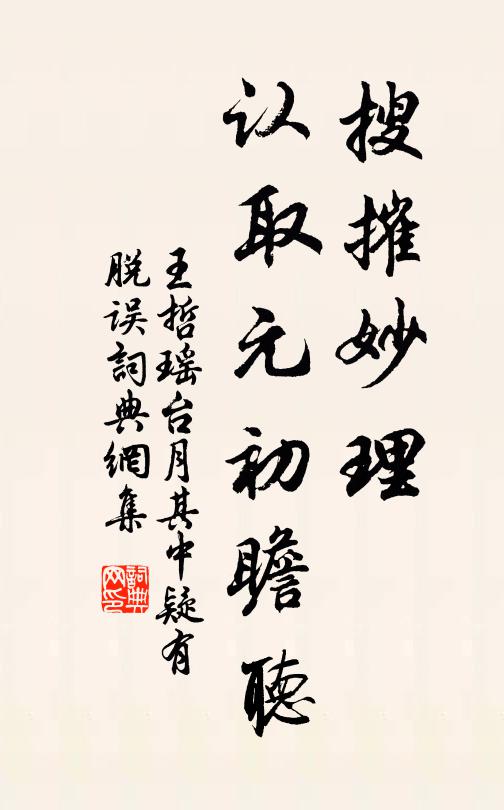 搜摧妙理
认取元初瞻聴
王哲瑶台月其中疑有
脱误詞典網集
詞典
网印